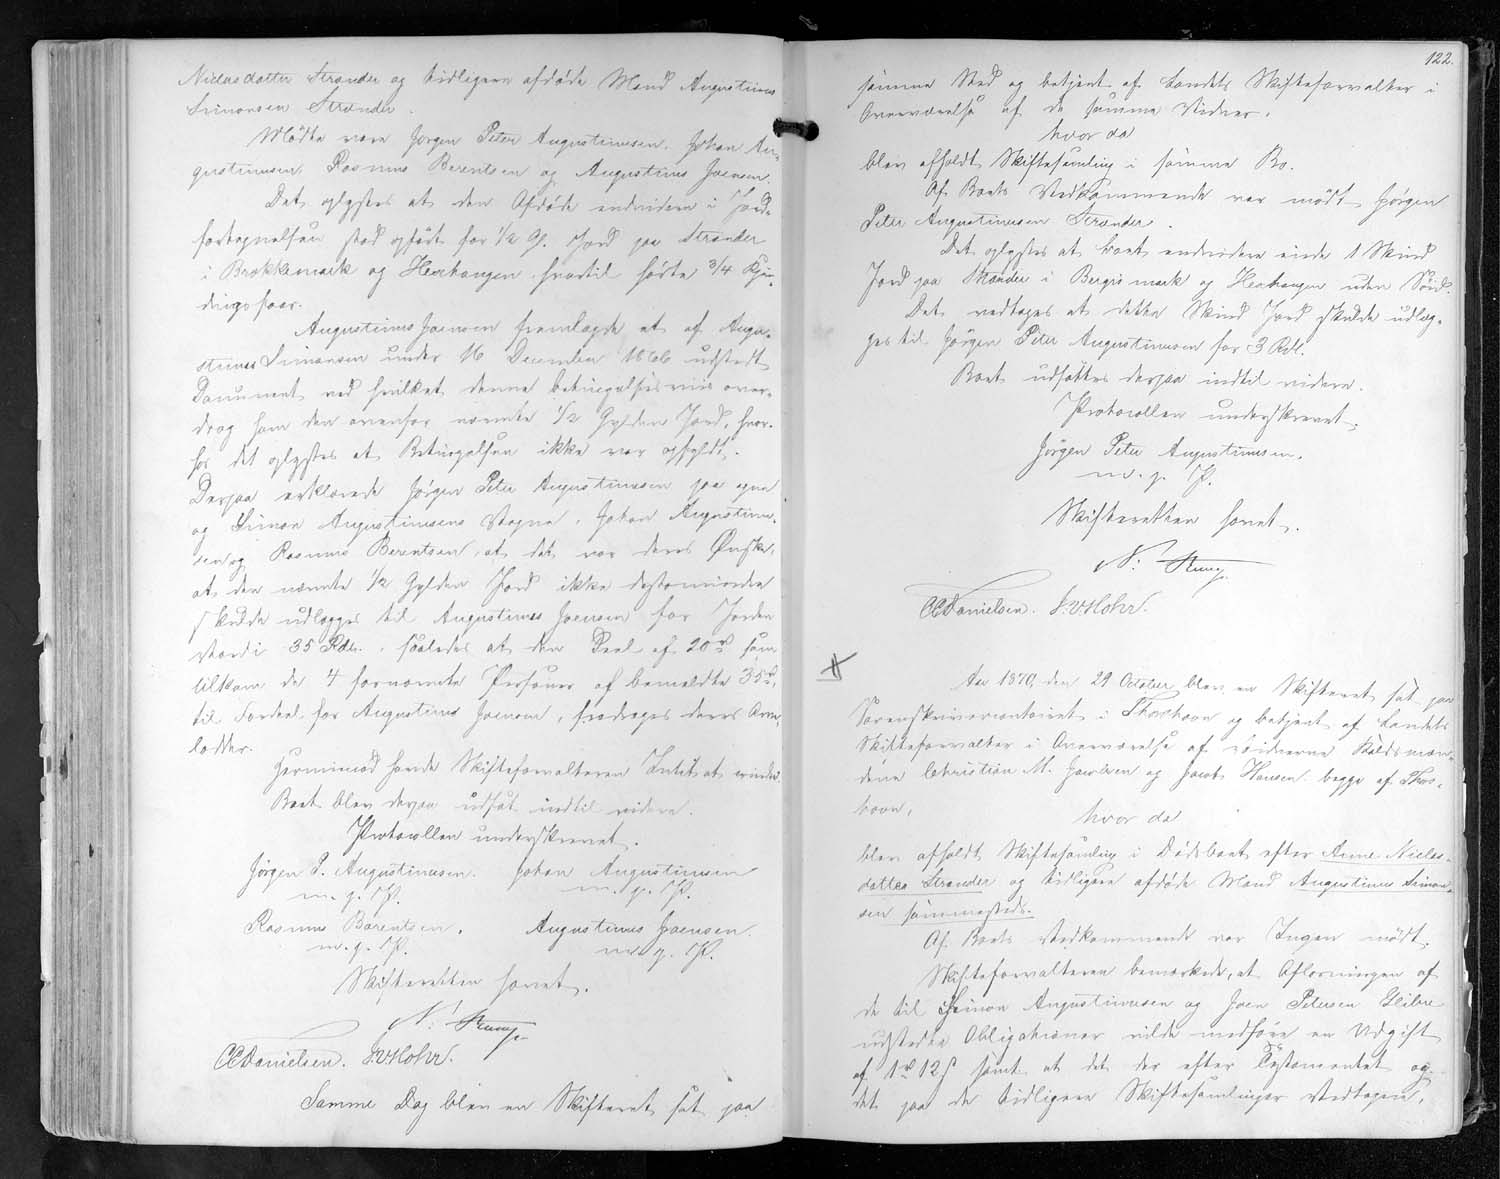 Niclasdatter Strænder og tidligere afdöde Mand Augustinus
Simonsen Strænder.
Mödte vare Jørgen Peter Augustinussen, Johan Au-
gustinussen Rasmus Berentsen og Augustinus Joensen.
Det oplystes at den Afdöde endvidere i Jord-
fortegnelsen stod opført for 1/2 Gl. Jord paa Strænder
i Brekkemark og Hexhaugen, hvortil hørte 3/4
faar.
Augustinus Joensen fremlagde et af Augu-
stinus Simonsen under 16 December 1866 udstedt
Document ved hvilket denne betingelsesviis over-
drog ham den ovenfor nævnte 1/2 Gylden Jord, hvor-
hos det oplystes at Betingelsen ikke var opfyldt.
Derpaa erklærede Jörgen Peter Augustinussen paa egne
og Simon Augustinussens Vegne, Johan Augustinus-
sen og Rasmus Berentsen, at det var deres Ønske,
at den nævnte 1/2 Gylden Jord ikke destomindre
skulde udlægges til Augustinus Joensen for Jordens
Værdi 35 Rdlr., saaledes at den Deel af 20 rd som
tilkom de 4 fornævnte Personer af bemeldte 35 rd,
til Fordeel for Augustinus Joensen, fradroges deres Arve-
lodder.
Herimod havde Skifteforvalteren Intet at erindre.
Boet blev derpaa udsat indtil videre.
Protocollen underskrevet.
Jørgen P. Augustinussen. Johan Augustinussen
m. p. P. m. p. P.
Rasmus Berentsen. Augustinus Joensen.
m. p. P. m. p. P.
Skifteretten hævet.
N:
CCDanielsen. J.v.Hohr.
Samme Dag blev en Skifteret sat paa
122.
samme Sted og betjent af Landets Skifteforvalter i
Overværelse af de samme Vidner,
hvor da
blev afholdt Skiftesamling i samme Bo.
Af Boets Vedkommende var mödt Jørgen
Peter Augustinussen Strænder.
Det oplystes at boet endvidere eiede 1 Skind
Jord paa Strænder i Bergismark og Hexhaugen uden
Det vedtoges at dette Skind Jord skulde udlæg-
ges til Jörgen Peter Augustinussen for 3 Rdl.
Boet udsattes derpaa indtil videre.
Protocollen underskrevet.
Jörgen Peter Augustinussen.
m. p. P.
Skifteretten hævet.
N:
CCDanielsen. J.v.Hohr.
Aar 1870, den 29 October blev en Skifteret sat paa
Sorenskrivercontoiret i Thorshavn og betjent af Landets
Skifteforvalter i Overværelse af Vidnerne
dene Christian M. Jacobsen og Jacob Hansen begge af Thors-
havn,
hvor da
blev afholdt Skiftesamling i Dödsboet efter Anne Niclas-
datter Strænder og tidligere afdöde Mand Augustinus Simon-
sen sammesteds.
Af Boets Vedkommende var Ingen mödt.
Skifteforvalteren bemærkede, at Aflæsningen af
de til Simon Augustinussen og Joen Petersen Glibre
udstedte Obligationer vilde medföre en Udgift
af 1 rd 12 ß samt at det der efter Testamentet og
det paa de tidligere Skiftesamlinger Vedtagne,